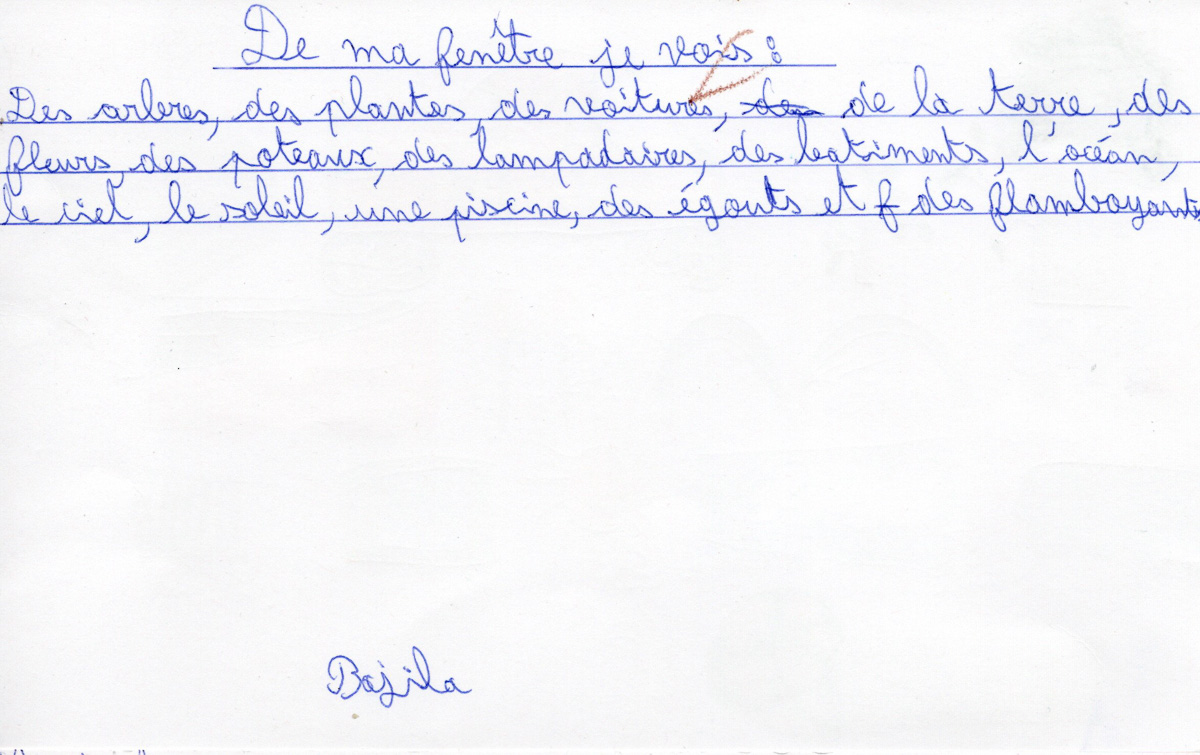 De ma fenêtre je vois :
Des arbres, des plantes, des voitures, des de la terre, des
fleurs, des poteaux, des lampadaires, des batiments, l'océan,
le ciel, le soleil, une piscine, des égouts et f des flamboyants
Bajila